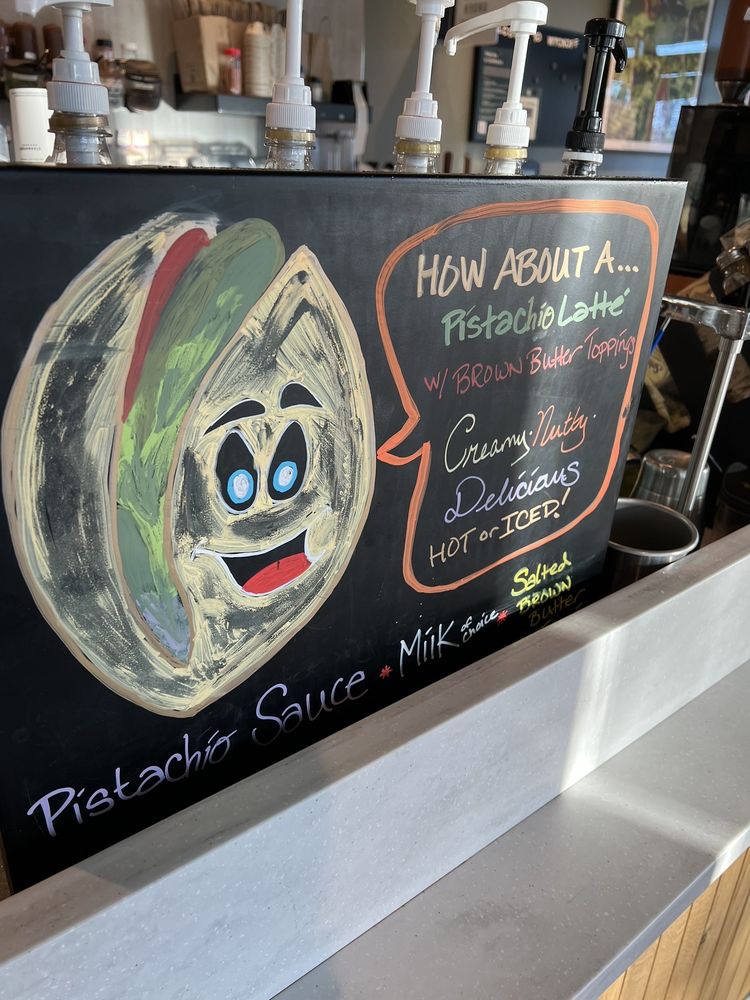 HOW ABOUT A...
Pistachio Latté
W/ BROWN Butter Toppings
Creamy · Nutty ·
Delicious
HOT or ICED!
Pistachio Sauce * Milk of choice * Salted BROWN Butter